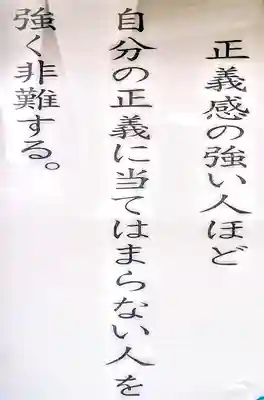 正義感の強い人ほど
自分の正義に当てはまらない人を
強く非難する。